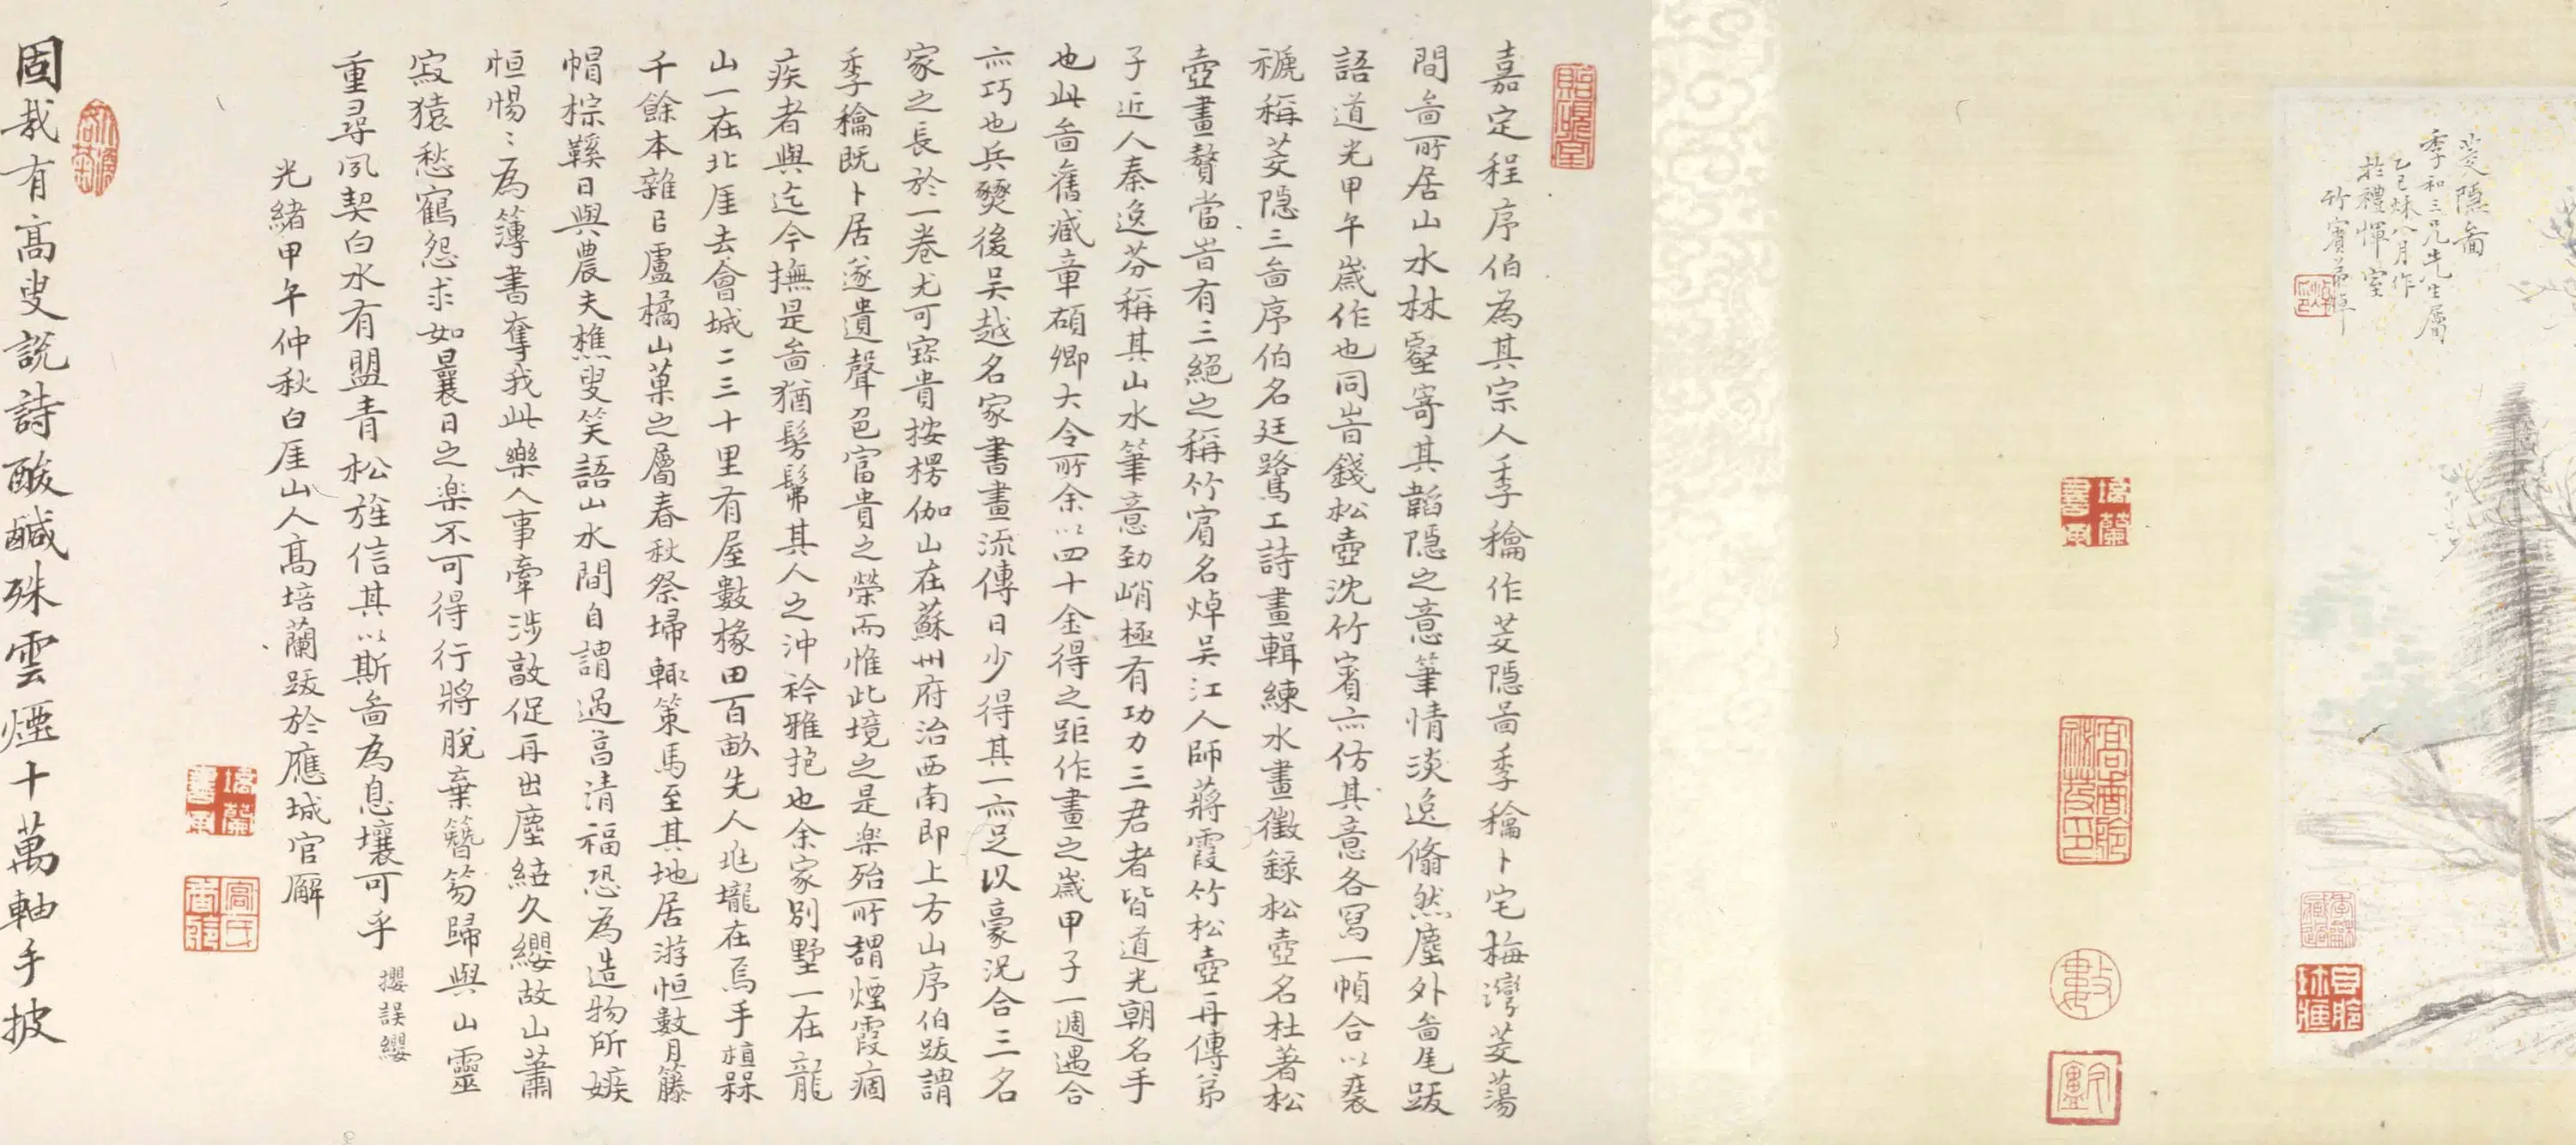 菱隱啚
季和三兄先生屬
乙巳秋八月作
於禮惲室
竹賓弟焯
嘉定程序伯為其宗人季䆐作菱隱啚季䆐卜宅梅灣菱蕩
間啚所居山水林壑寄其韜隱之意筆情淡逸翛然塵外啚尾跋
語道光甲午歲作也同旹錢松壺沈竹賓亦仿其意各寫一幀合以裝
褫稱菱隱三啚序伯名廷鷺工詩畫輯練水畫徵録松壺名杜著松
壺畫贅當旹有三絕之稱竹賓名焯吴江人師蔣霞竹松壺再傳弟
子近人秦逸芬稱其山水筆意勁峭極有功力三君者皆道光朝名手
也此啚舊藏章碩卿大令所余以四十金得之距作畫之歲甲子一週遇合
亦巧也兵燹後吴越名家書畫流傳日少得其一亦足以豪況合三名
家之長於一卷尤可寶貴按楞伽山在蘇州府治西南即上方山序伯跋謂
季䆐既卜居遂遺聲色富貴之榮而惟此境之是樂殆所謂煙霞痼
疾者與迄今撫是啚猶髣髴其人之沖衿雅抱也余家別墅一在龍
山一在北厓去會城二三十里有屋數椽田百畝先人兆壠在焉手植槑
千餘本雜㠯盧橘山菓之屬春秋祭埽輙策馬至其地居游恒數月籐
帽棕鞵日與農夫樵叟笑語山水間自謂過高清福恐為造物所嫉
恒惕〻為簿書奪我此樂人事牽涉敦促再出塵繞久纓故山蕭
寂猿愁鶴怨求如曩日之樂不可得行將脫棄簪笏歸與山靈
重尋夙契白水有盟青松旌信其以斯啚為息壤可乎
攖誤纓
光緒甲午仲秋白厓山人高培蘭跋於應城官廨
固哉有高叟說詩酸鹹殊雲煙十萬軸手披